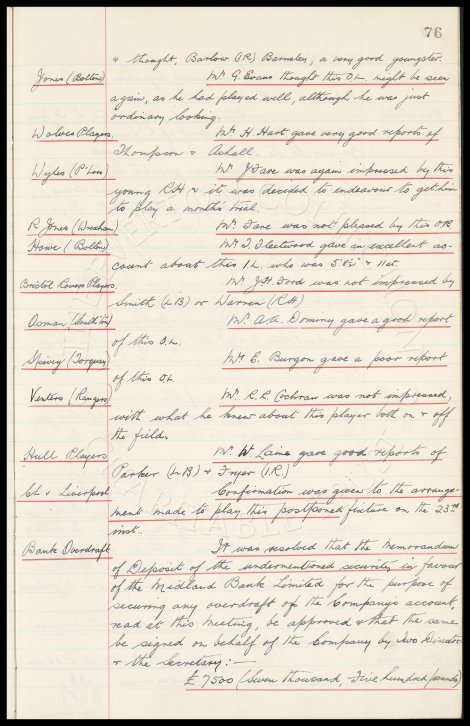 76
& thought, Barlow (I.R) Barnsley, a very good youngster.
Jones (Bolton) Mr G. Evans thought this O.L. might be seen
again, as he had played well, although he was just
ordinary looking.
Wolves Players. Mr H. Hart gave very good reports of
Thompson & Ashall.
Wyles (P'boro) Mr J Fare was again impressed by this
young R.H & it was decided to endeavour to get him
to play a months trial.
R Jones (Wrexham) Mr Fare was not pleased by this O.R.
Howe (Bolton) Mr T. Fleetwood gave an excellent ac-
count about this I.L. who was 5'8½" & 11st.
Bristol Rovers Players Mr J.H. Ford was not impressed by
Smith (L.B) or Warren (R.H)
Oxman (South'ton) Mr A.A. Dominy gave a good report
of this O.L.
Spivey (Torquay) Mr E. Burgon gave a poor report
of this O.L.
Venters (Rangers) Mr R.L. Cochran was not impressed,
with what he knew about this player both on & off
the field.
Hull Players Mr W Laine gave good reports of
Parker (L.B) & Fryer (I.R)
Ch. v Liverpool Confirmation was given to the arrange-
ment made to play this postponed fixture on the 23rd
inst..
Bank Overdraft It was resolved that the Memorandum
of Deposit of the undermentioned security in favour
of the Midland Bank Limited for the purpose of
securing any overdraft of the Companys account,
read at this Meeting, be approved & that the same
be signed on behalf of the Company by Two Director
& the Secretary: —
£7500 (Seven thousand, Five hundred pounds)